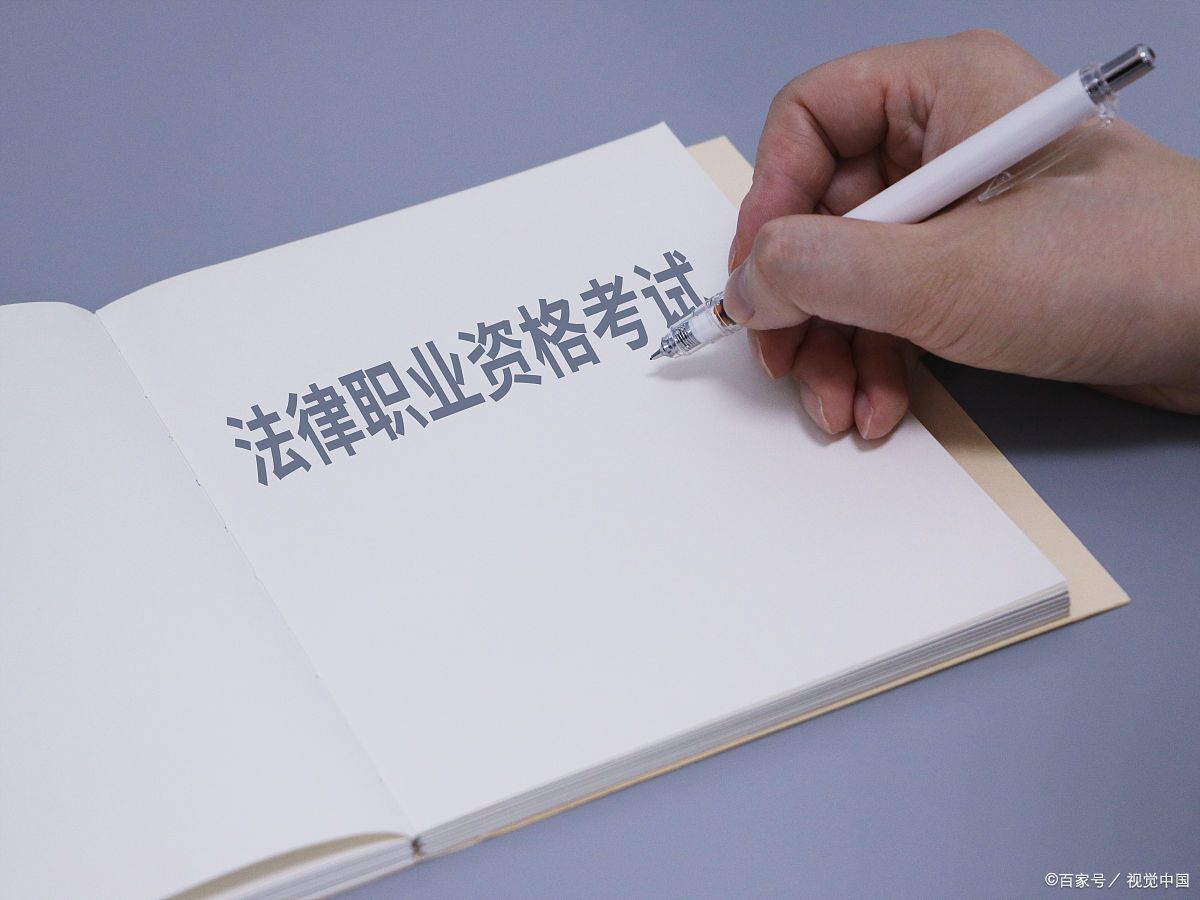 法律职业资格考试
©百家号／视觉中国